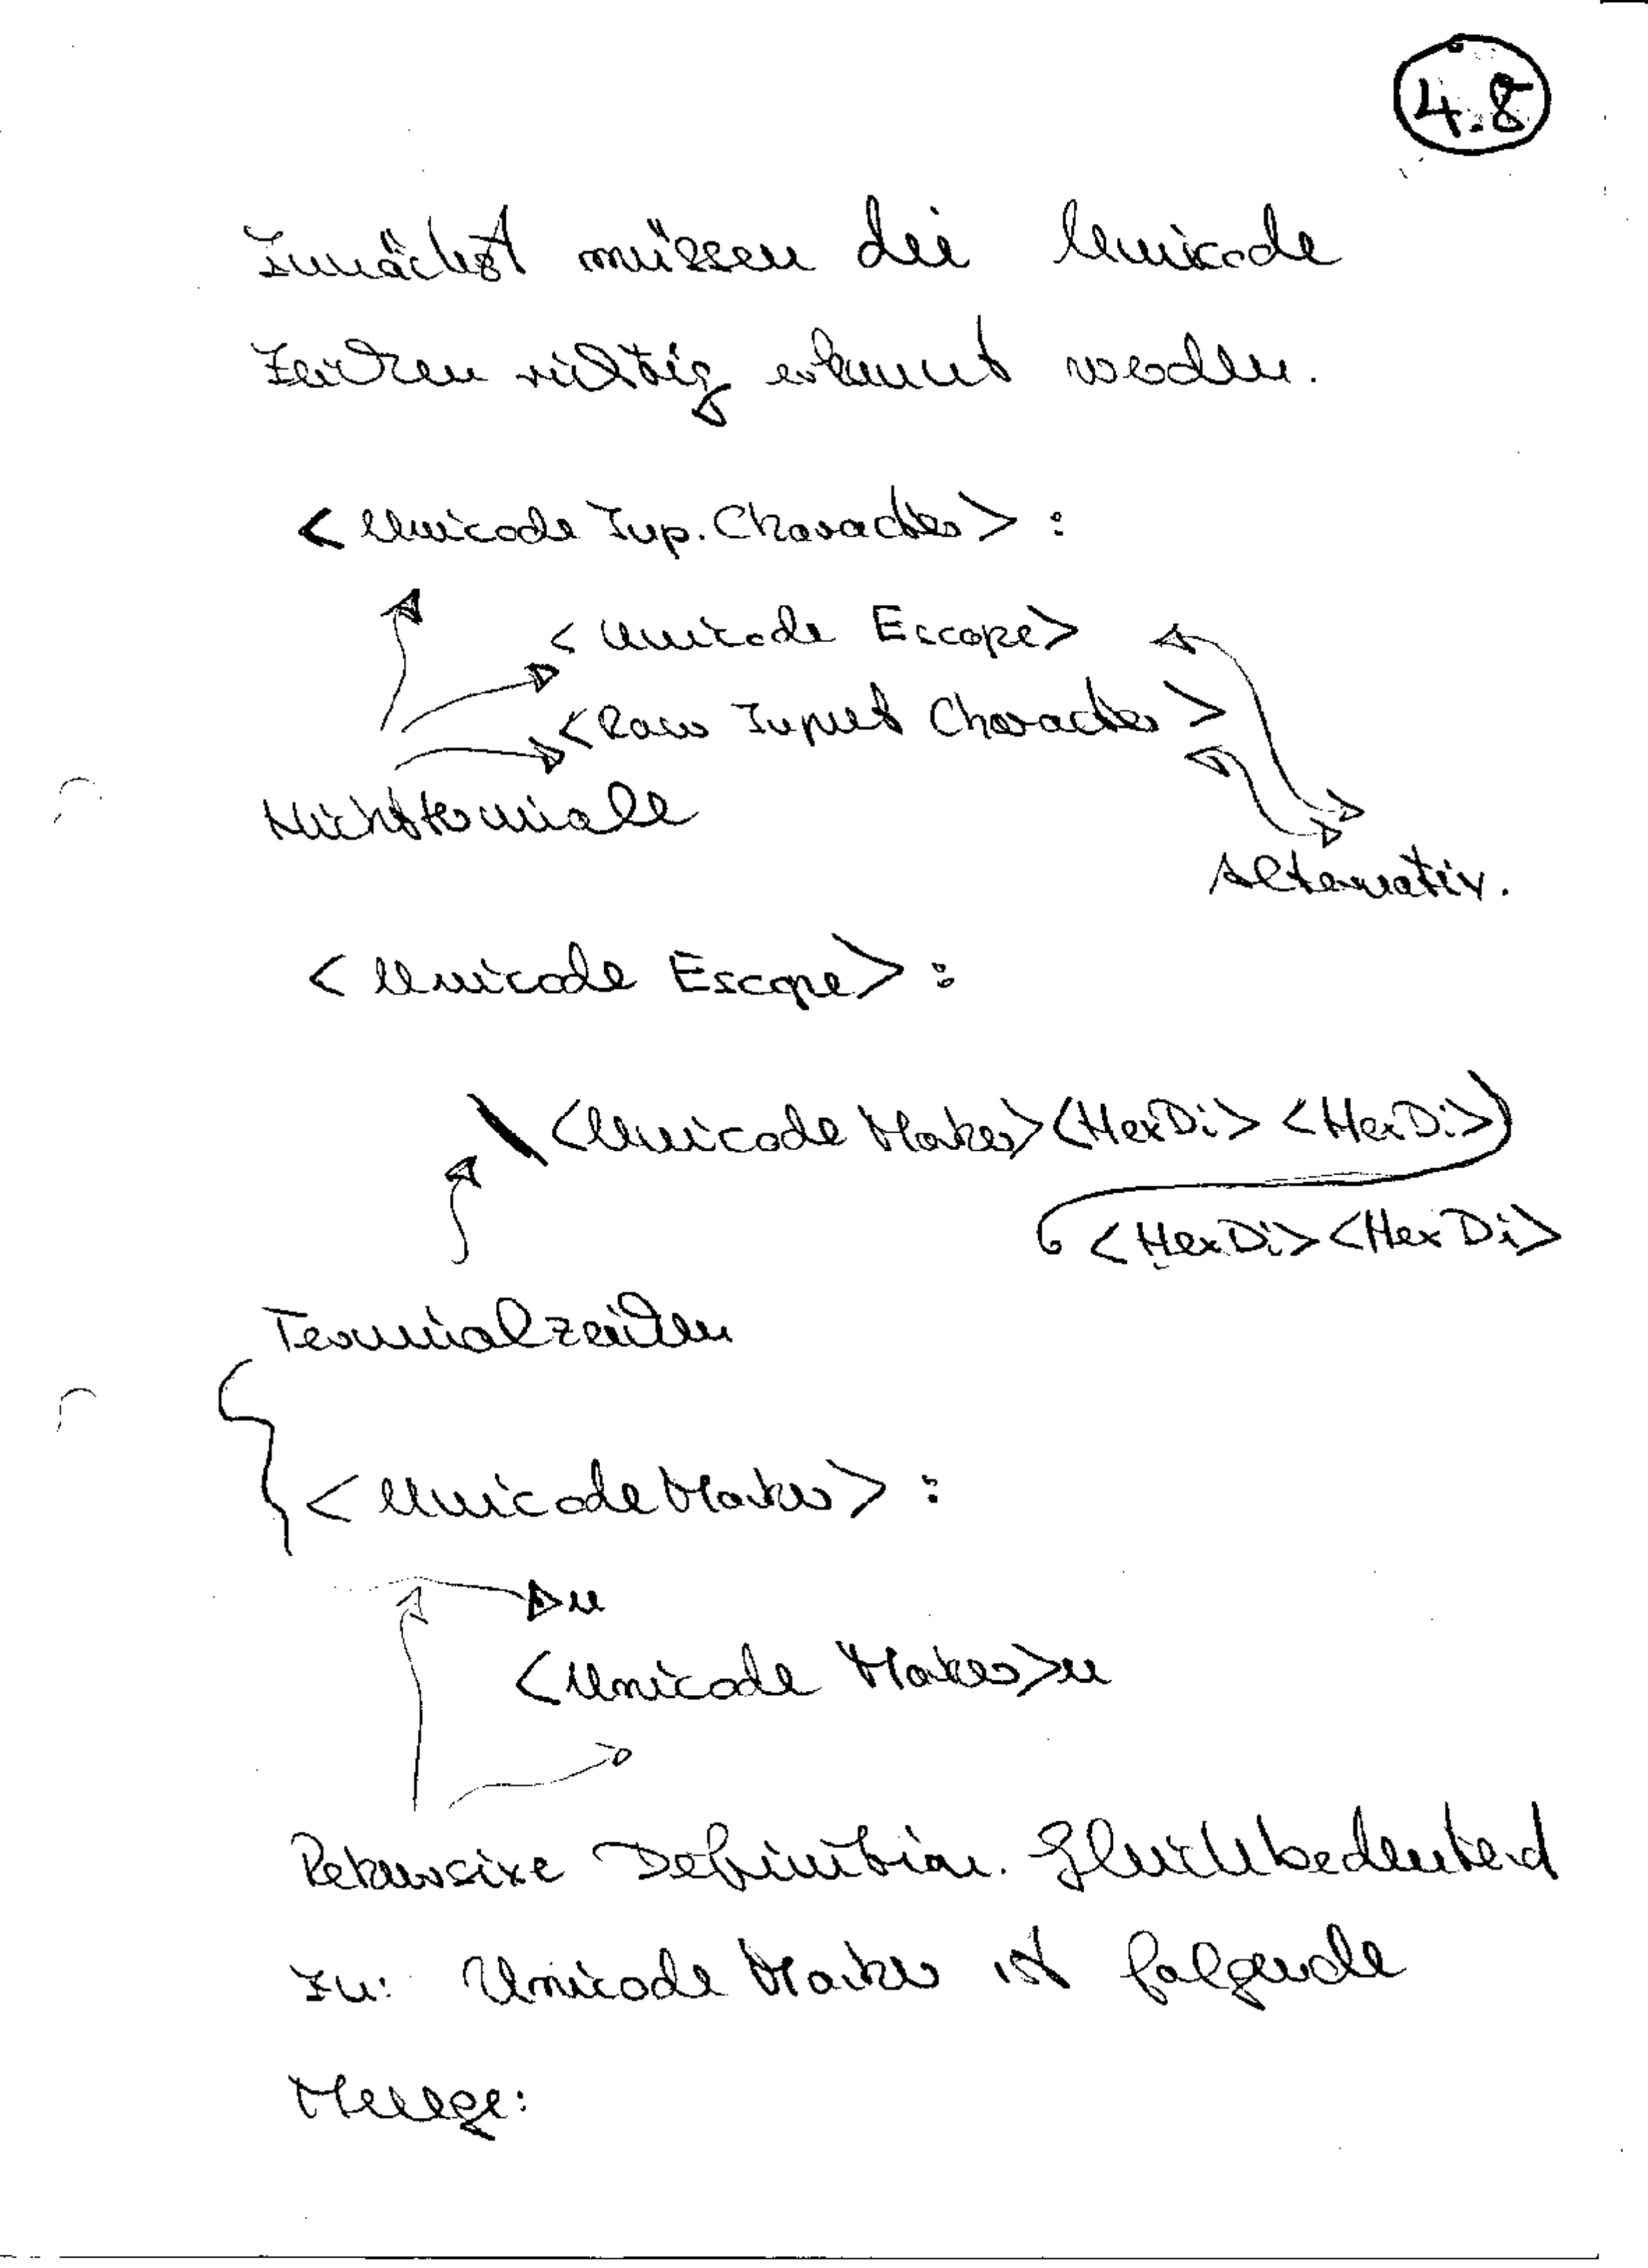 4.8
Zunächst müssen die Unicode
Zeichen richtig erkannt werden.
<Unicode Inp. Character> :
<Unicode Escape>
<Raw Input Character>
Nichtterminale
Alternativ.
<Unicode Escape> :
\ <Unicode Marker> <HexDi> <HexDi>
<HexDi> <HexDi>
Terminalzeichen
<Unicode Marker> :
u
<Unicode Marker>u
Rekursive Definition. Gleichbedeutend
zu: Unicode Marker ist folgende
Menge: